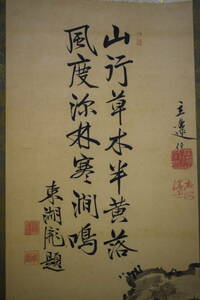 山行草木半黄落
風度深林寒澗鳴
東湖彪題